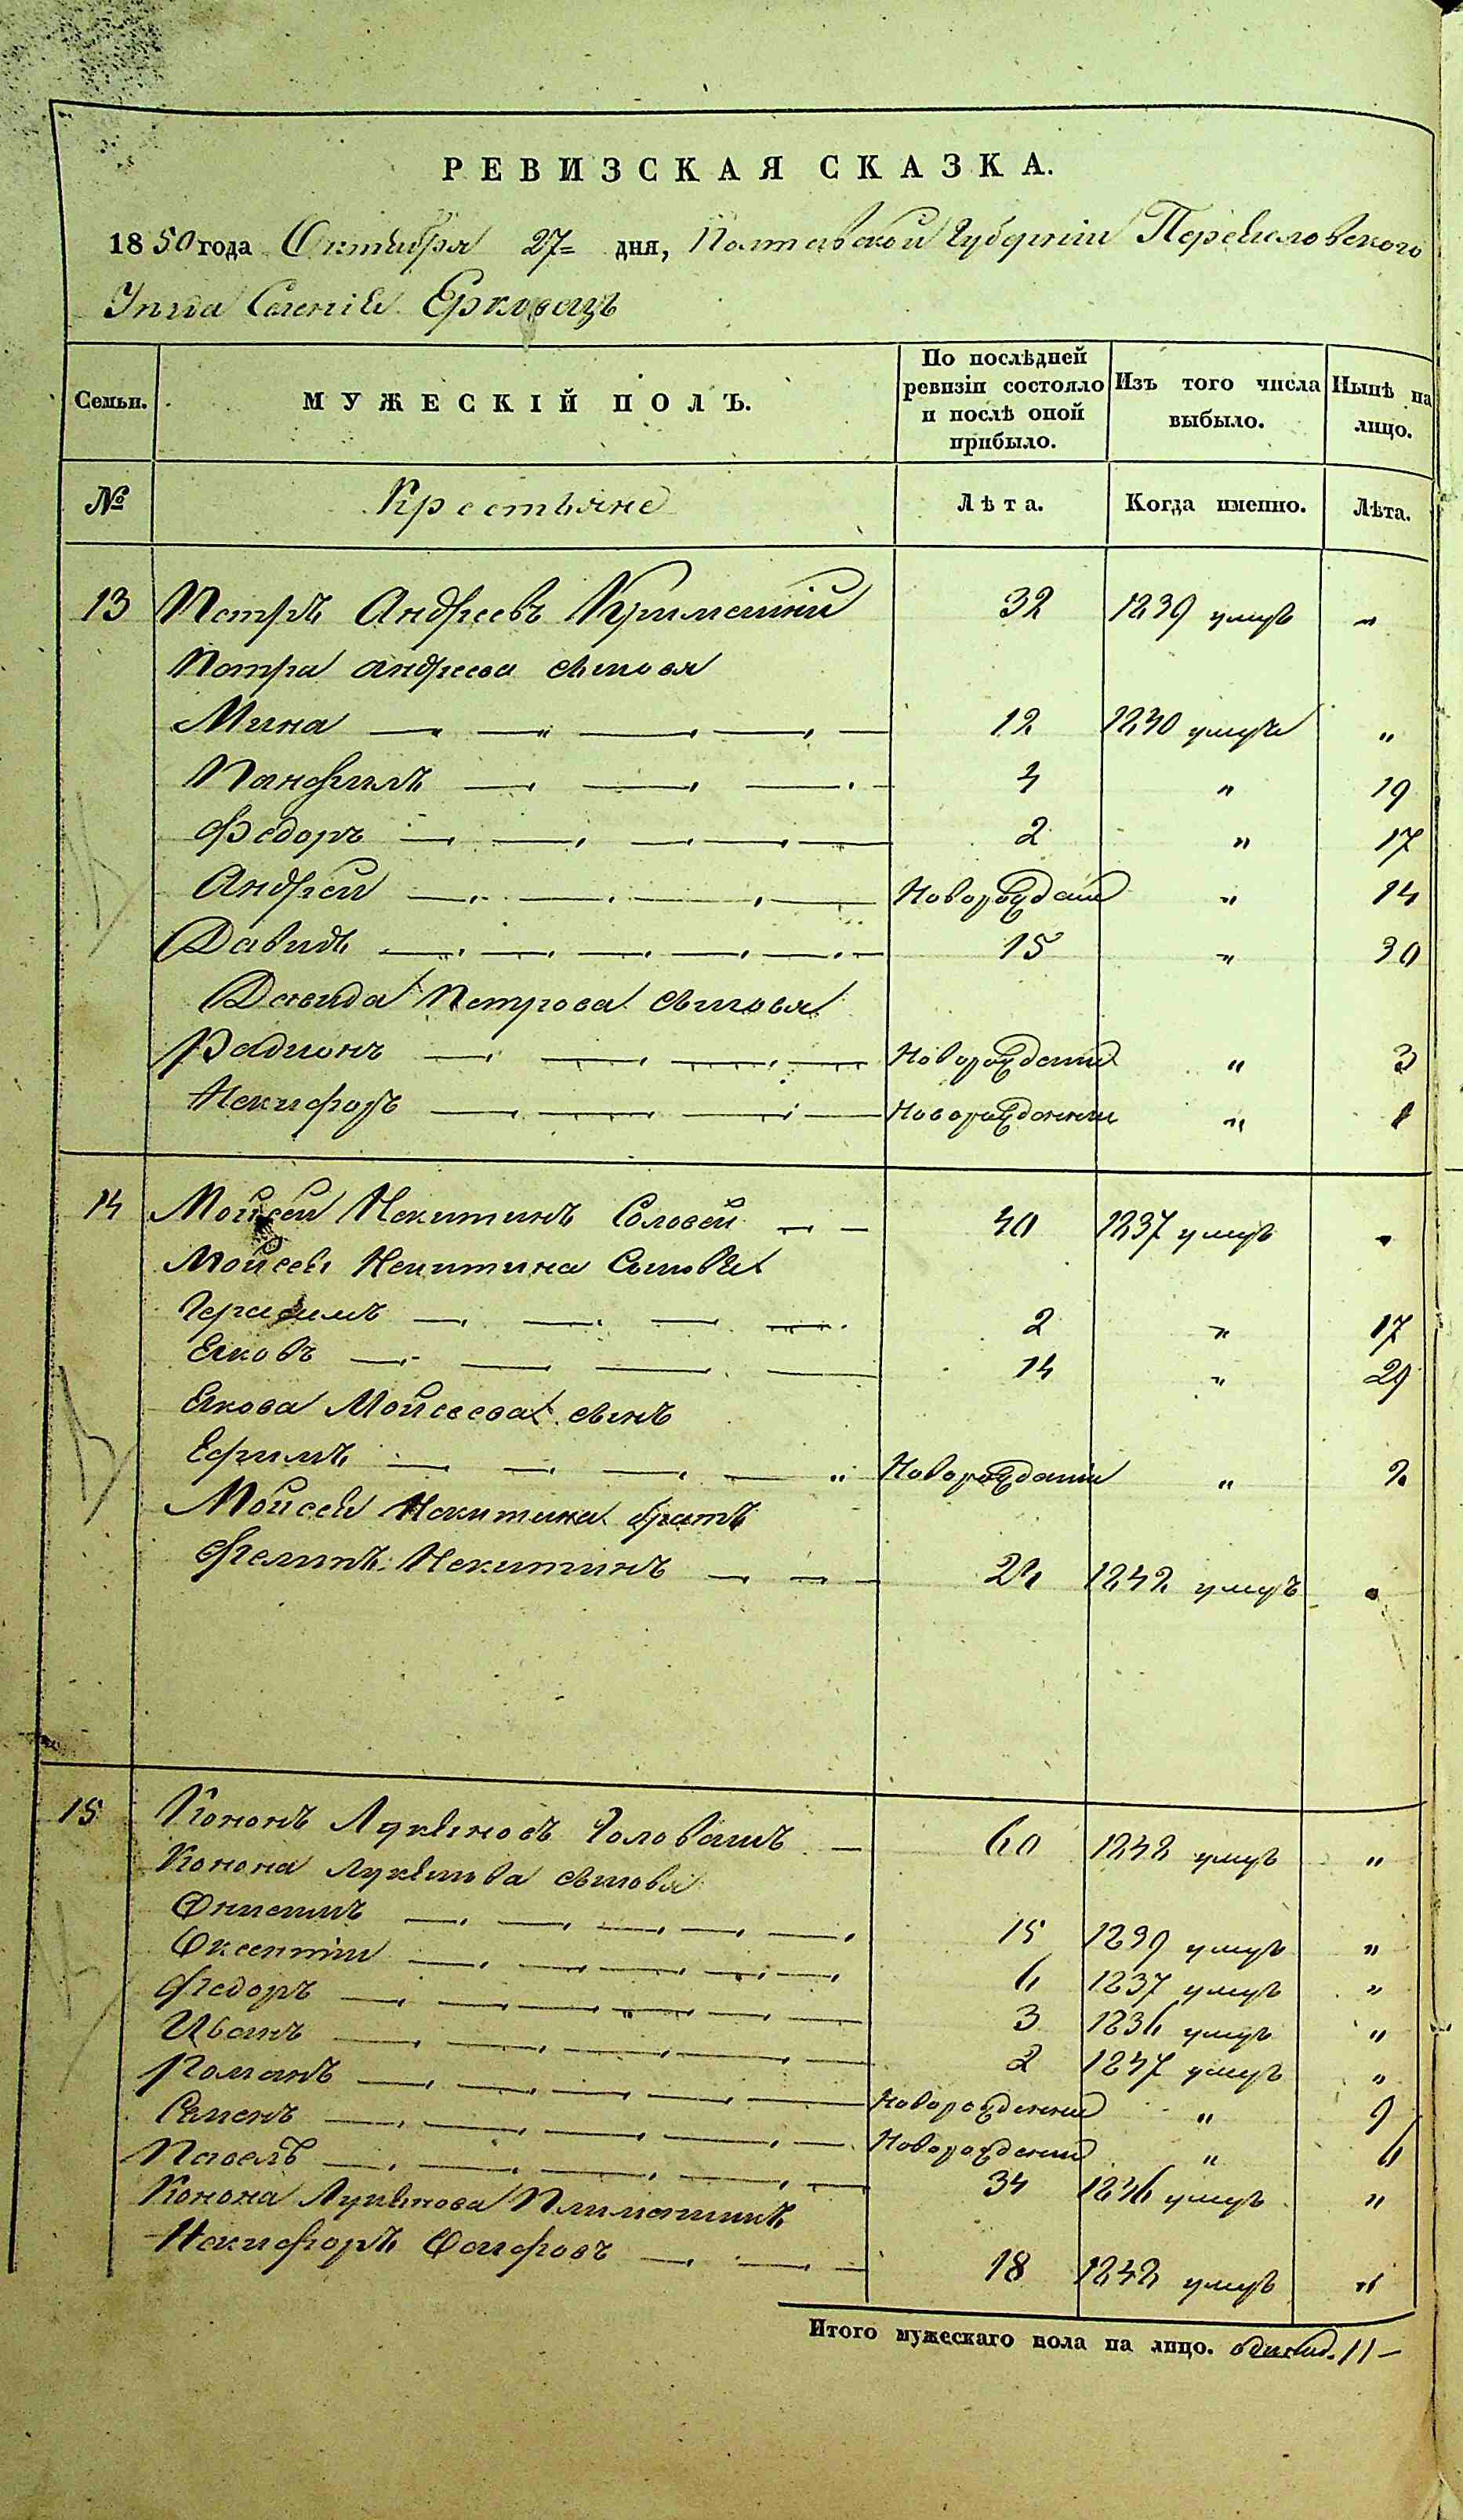 РЕВИЗСКАЯ СКАЗКА.
1850 года Октября 27 = дня, Полтавской Губерніи Переяславского
Уезда Селенія Ерковецъ
Семьи. МУЖЕСКІЙ ПОЛЪ. По послѣдней ревизіи состояло и послѣ оной прибыло. Изъ того числа выбыло. Нынѣ на лицо.
№ Крестьяне Лѣта. Когда именно. Лѣта.
13 Петръ Андреевъ 32 1839 умеръ "
Петра Андреева сыновя
Мина 12 1840 умеръ "
Панфилъ 4 " 19
Федоръ 2 " 17
Андрей Новорожденый " 14
Давидъ 15 " 30
Давида Петрова сыновя
Радионъ Новорожденый " 3
Некифоръ Новорожденный " 1
14 Мойсей Некитинъ Соловей 40 1837 умеръ "
Мойсея Некитина Сыновя
Герасимъ 2 " 17
Яковъ 14 " 29
Якова Мойсеева сынъ
Ефимъ Новорожденый " 2
Мойсея Некитина братъ
Фелипъ Некитинъ 24 1842 умеръ "
15 Кононъ Лукяновъ Головашъ 60 1842 умеръ "
Конона Лукянова сыновя
Онисимъ 15 1839 умеръ "
Оксентий 6 1837 умеръ "
Федоръ 3 1836 умеръ "
Иванъ 2 1847 умеръ "
Романъ Новорожденный " 9
Семенъ Новорожденный " 6
Павелъ 34 1846 умеръ "
Конона Лукянова Племянникъ
Некифоръ 18 1842 умеръ "
Итого мужескаго пола на лицо. 11 —